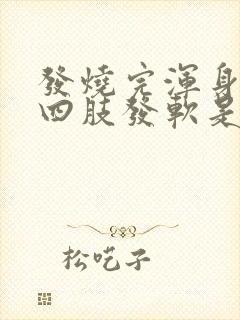 發燒完渾身
四肢發軟是
松吃子